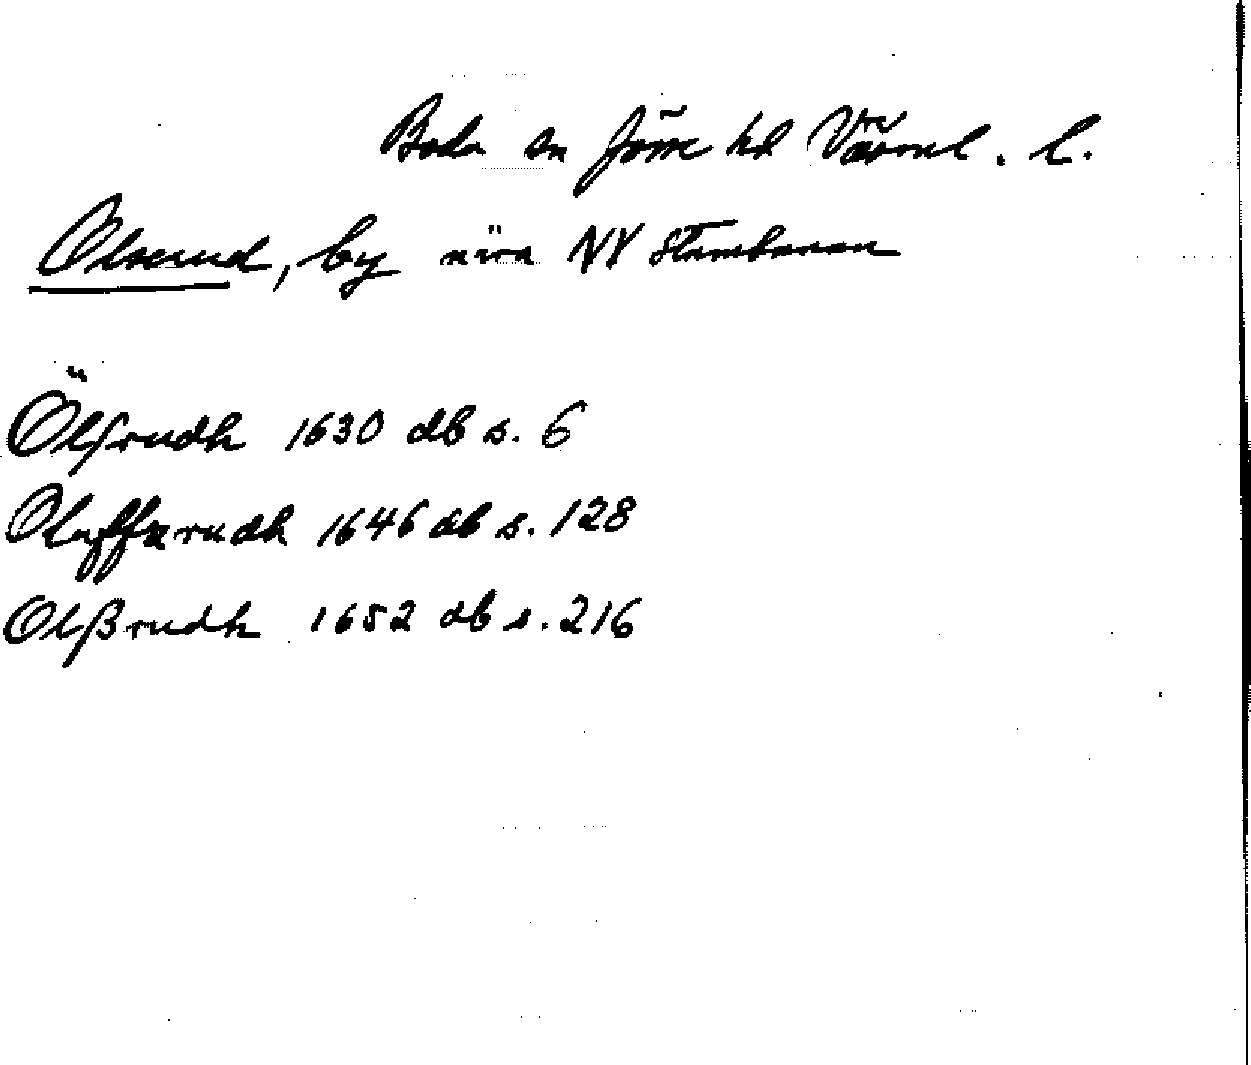 Boda sn Jösse hd Värml. l.
Olserud, by nära NV Stambanan
Ölsrudh 1630 db s. 6
Oluffzrudh 1646 db s. 128
Olßrudh 1652 db s. 216